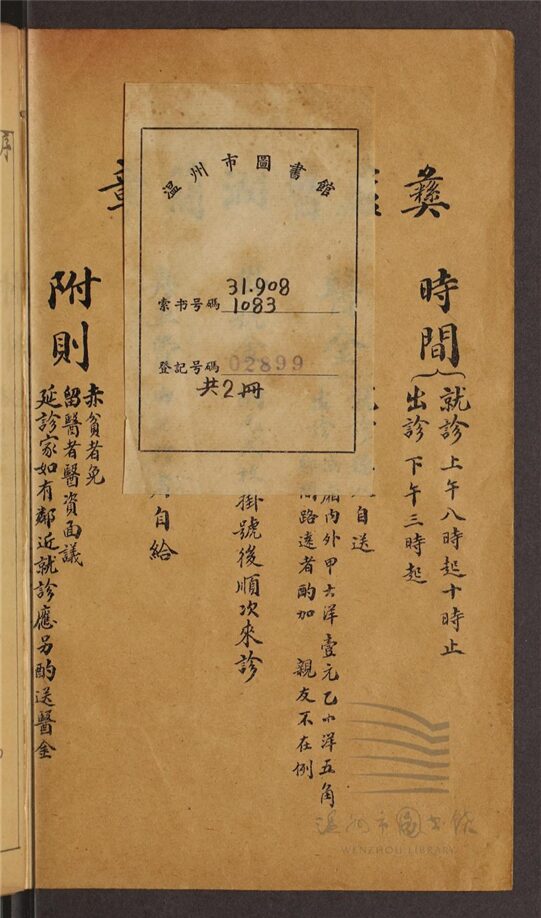 彝
時間
就診 上午八時起十時止
出診 下午三時起
自送
廂內外 甲大洋壹元 乙小洋五角
路遠者酌加 親友不在例
掛號後順次來診
自給
章
附則
赤貧者免
留醫者醫資面議
延診家如有鄰近就診應另酌送醫金
溫州市圖書館
索书号碼 31.908
1083
登記号碼 02899
共2冊
温州市图书馆
WENZHOU LIBRARY